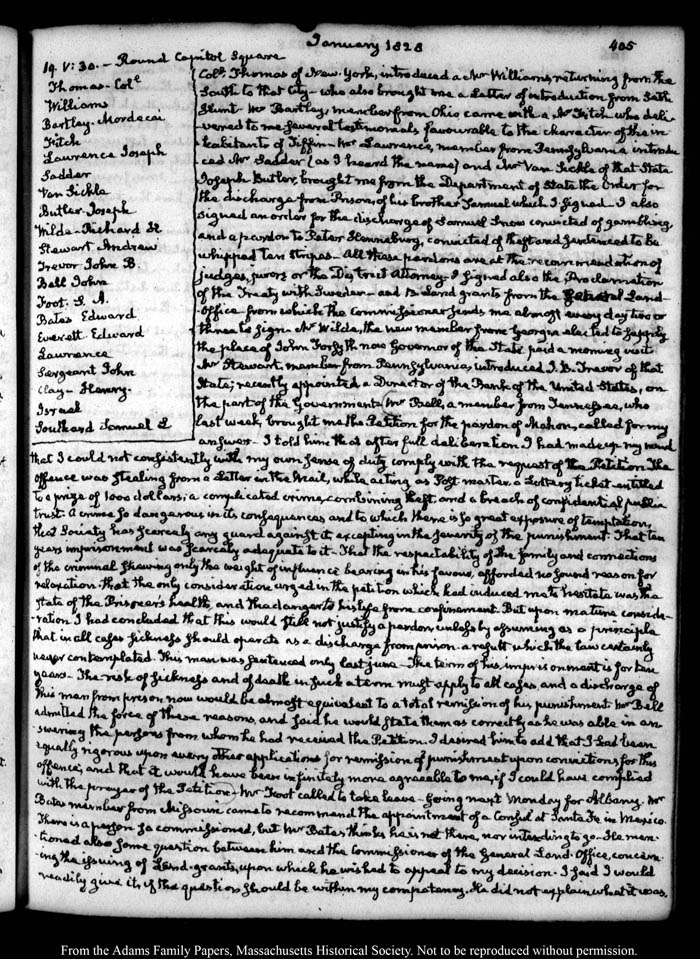 January 1828
405
19. V: 30. – Round Capitol Square
Thomas. Col.
Williams
Bartley. Mordecai
Fitch
Lawrence Joseph
Sadder
Van Sickle
Butler Joseph
Wilde. Richard H
Stewart Andrew
Trevor John B.
Bell John
Foot. S. A.
Bates Edward
Everett Edward
Lawrence
Sergeant John
Clay – Henry.
Israel
Southard Samuel L
Col. Thomas of New York, introduced a Mr Williams, returning from the
South to that City – who also brought me a Letter of introduction from Seth
Hunt – Mr Bartley, member from Ohio came with a Mr Fitch who deli-
vered to me several testimonials favourable to the character of the in-
habitants of Tiffin – Mr Lawrence, member from Pennsylvania introdu-
ced Mr Sadder (as I heard the name) and Mr Van Sickle of that State
Joseph Butler, brought me from the Department of State the Order for
the discharge from Prison, of his brother Samuel which I signed – I also
signed an order for the discharge of Samuel Snow convicted of gambling,
and a pardon to Peter Henneburg, convicted of theft and sentenced to be
whipped ten stripes – All these pardons are at the recommendation of
judges, jurors or the District Attorney – I signed also the Proclamation
of the Treaty with Sweden – and 12 Land grants from the General Land-
Office from which the Commissioner sends me almost every day two or
three to sign – Mr Wilde, the new member from Georgia elected to supply
the place of John Forsyth now Governor of the State paid a morning visit
Mr Stewart, member from Pennsylvania, introduced J. B. Trevor of that
State; recently appointed a Director of the Bank of the United States, on
the part of the Government. Mr Bell, a member from Tennessee, who
last week, brought me the Petition for the pardon of Mahon, called for my
answer – I told him that after full deliberation I had made up my mind
that I could not consistently with my own sense of duty comply with the request of the Petition. The
offence was stealing from a Letter in the Mail, while acting as Post master, a Lottery ticket entitled
to a prize of 1000 dollars; a complicated crime, combining theft, and a breach of confidential public
trust. A crime so dangerous in its consequences and to which there is so great exposure of temptation,
that Society has scarcely any guard against it, excepting in the severity of the punishment. That ten
years imprisonment was scarcely adequate to it. That the respectability of the family and connections
of the criminal shewing only the weight of influence bearing in his favour, afforded no sound reason for
relaxation. that the only consideration urged in the petition which had induced me to hesitate was the
state of the Prisoner's health, and the danger to his life from confinement. But upon mature conside-
-ration I had concluded that this would still not justify a pardon unless by assuming as a principle
that in all cases sickness should operate as a discharge from prison. a result which the law certainly
never contemplated. This man was sentenced only last June – The term of his imprisonment is for ten
years – The risk of sickness and of death in such a term must apply to all cases, and a discharge of
this man from prison now would be almost equivalent to a total remission of his punishment. Mr Bell
admitted the force of these reasons, and said he would state them as correctly as he was able in an
swering the persons from whom he had received the Petition. I desired him to add that I had been
equally rigorous upon every other application for remission of punishment upon convictions for this
offence; and that it would have been infinitely more agreeable to me, if I could have complied
with the prayer of the Petition – Mr Foot called to take leave – Going next Monday for Albany. Mr
Bates member from Missouri came to recommend the appointment of a Consul at Santa Fe in Mexico.
There is a person so commissioned, but Mr Bates thinks he is not there, nor intending to go – He men-
-tioned also some question between him and the Commissioner of the General Land Office, concern-
-ing the issuing of Land-grants, upon which he wished to appeal to my decision. I said I would
readily give it, if the question should be within my competency. He did not explain what it was.
From the Adams Family Papers, Massachusetts Historical Society. Not to be reproduced without permission.